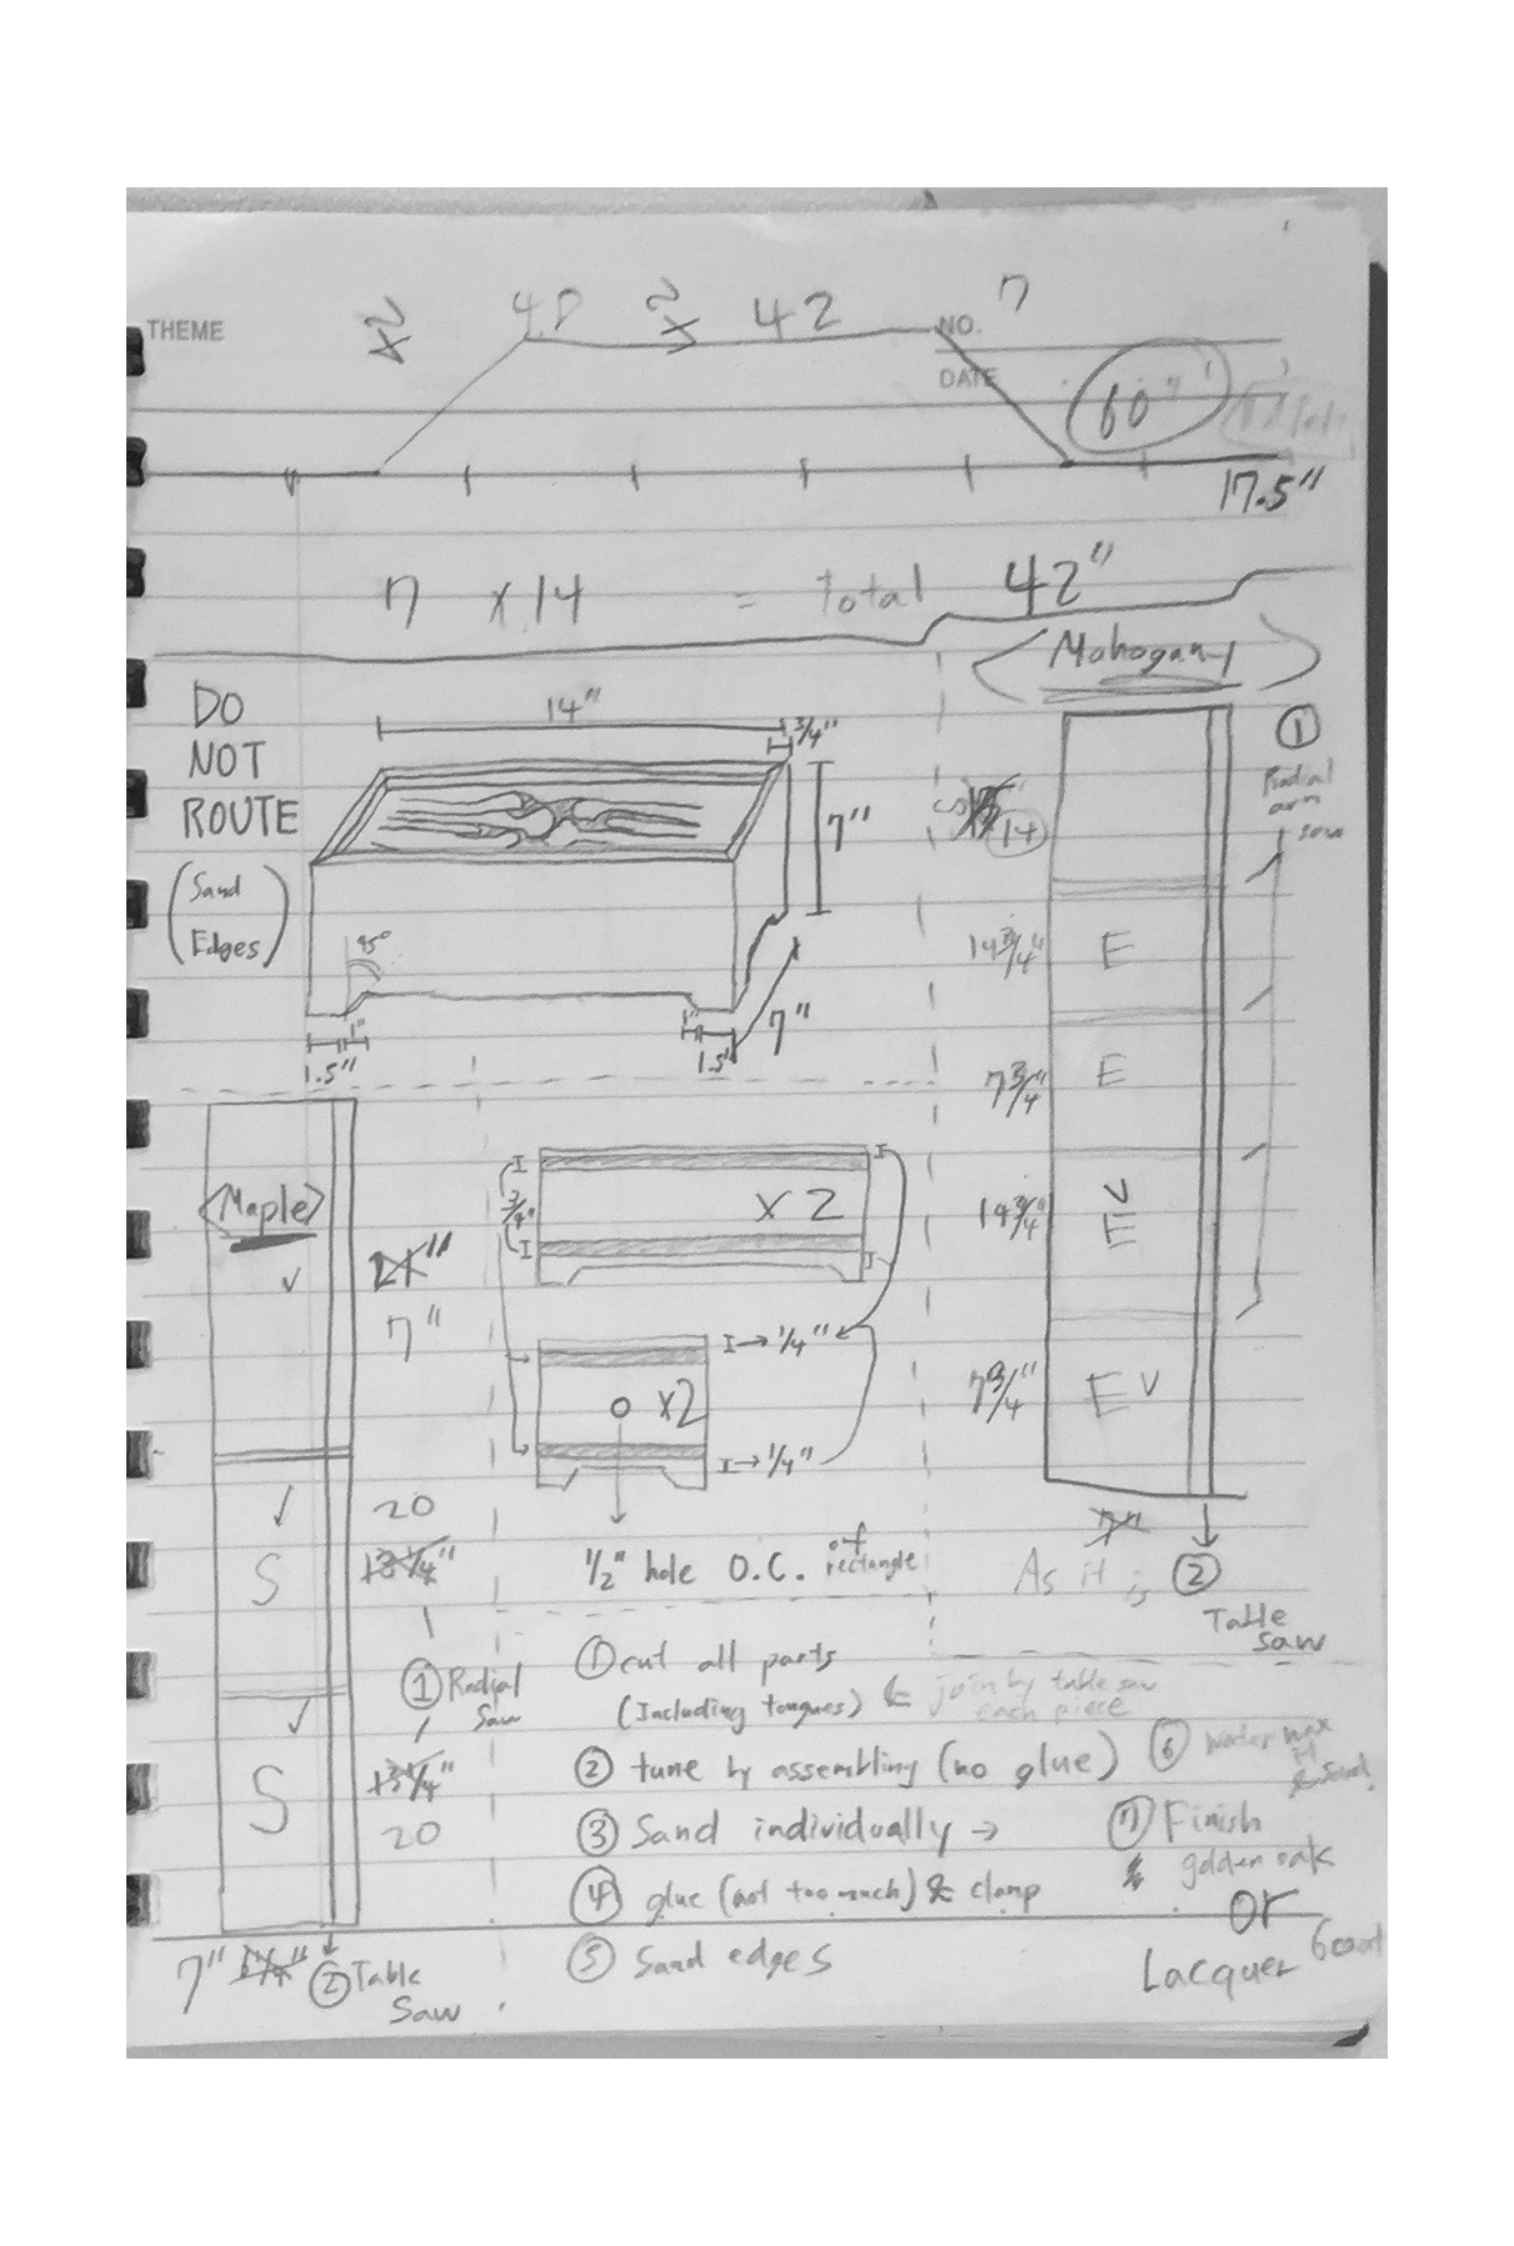 THEME
x2
42
7
NO.
DATE
60"
17.5"
7 x 14 = Total 42"
<Mahogany>
DO
NOT
ROUTE
(Sand
Edges)
14"
3/4"
7"
45°
1"
1.5"
1"
1.5"
7"
①
Radial
arm
saw
14
14 3/4"
E
7 3/4"
E
14 3/4"
E V
7 3/4"
E V
As it is
② Table
saw
<Maple>
7"
20
S
① Radial
Saw
S
20
7"
② Table
Saw
3/4"
x 2
1/4"
x2
1/4"
1/2" hole O.C. of rectangle
① cut all parts
(Including tongues) & join by table saw
each piece
② tune by assembling (no glue)
③ Sand individually →
④ glue (not too much) & clamp
⑤ Sand edges
⑥ water
& Sand
⑦ Finish
golden oak
or
Lacquer 6 coat